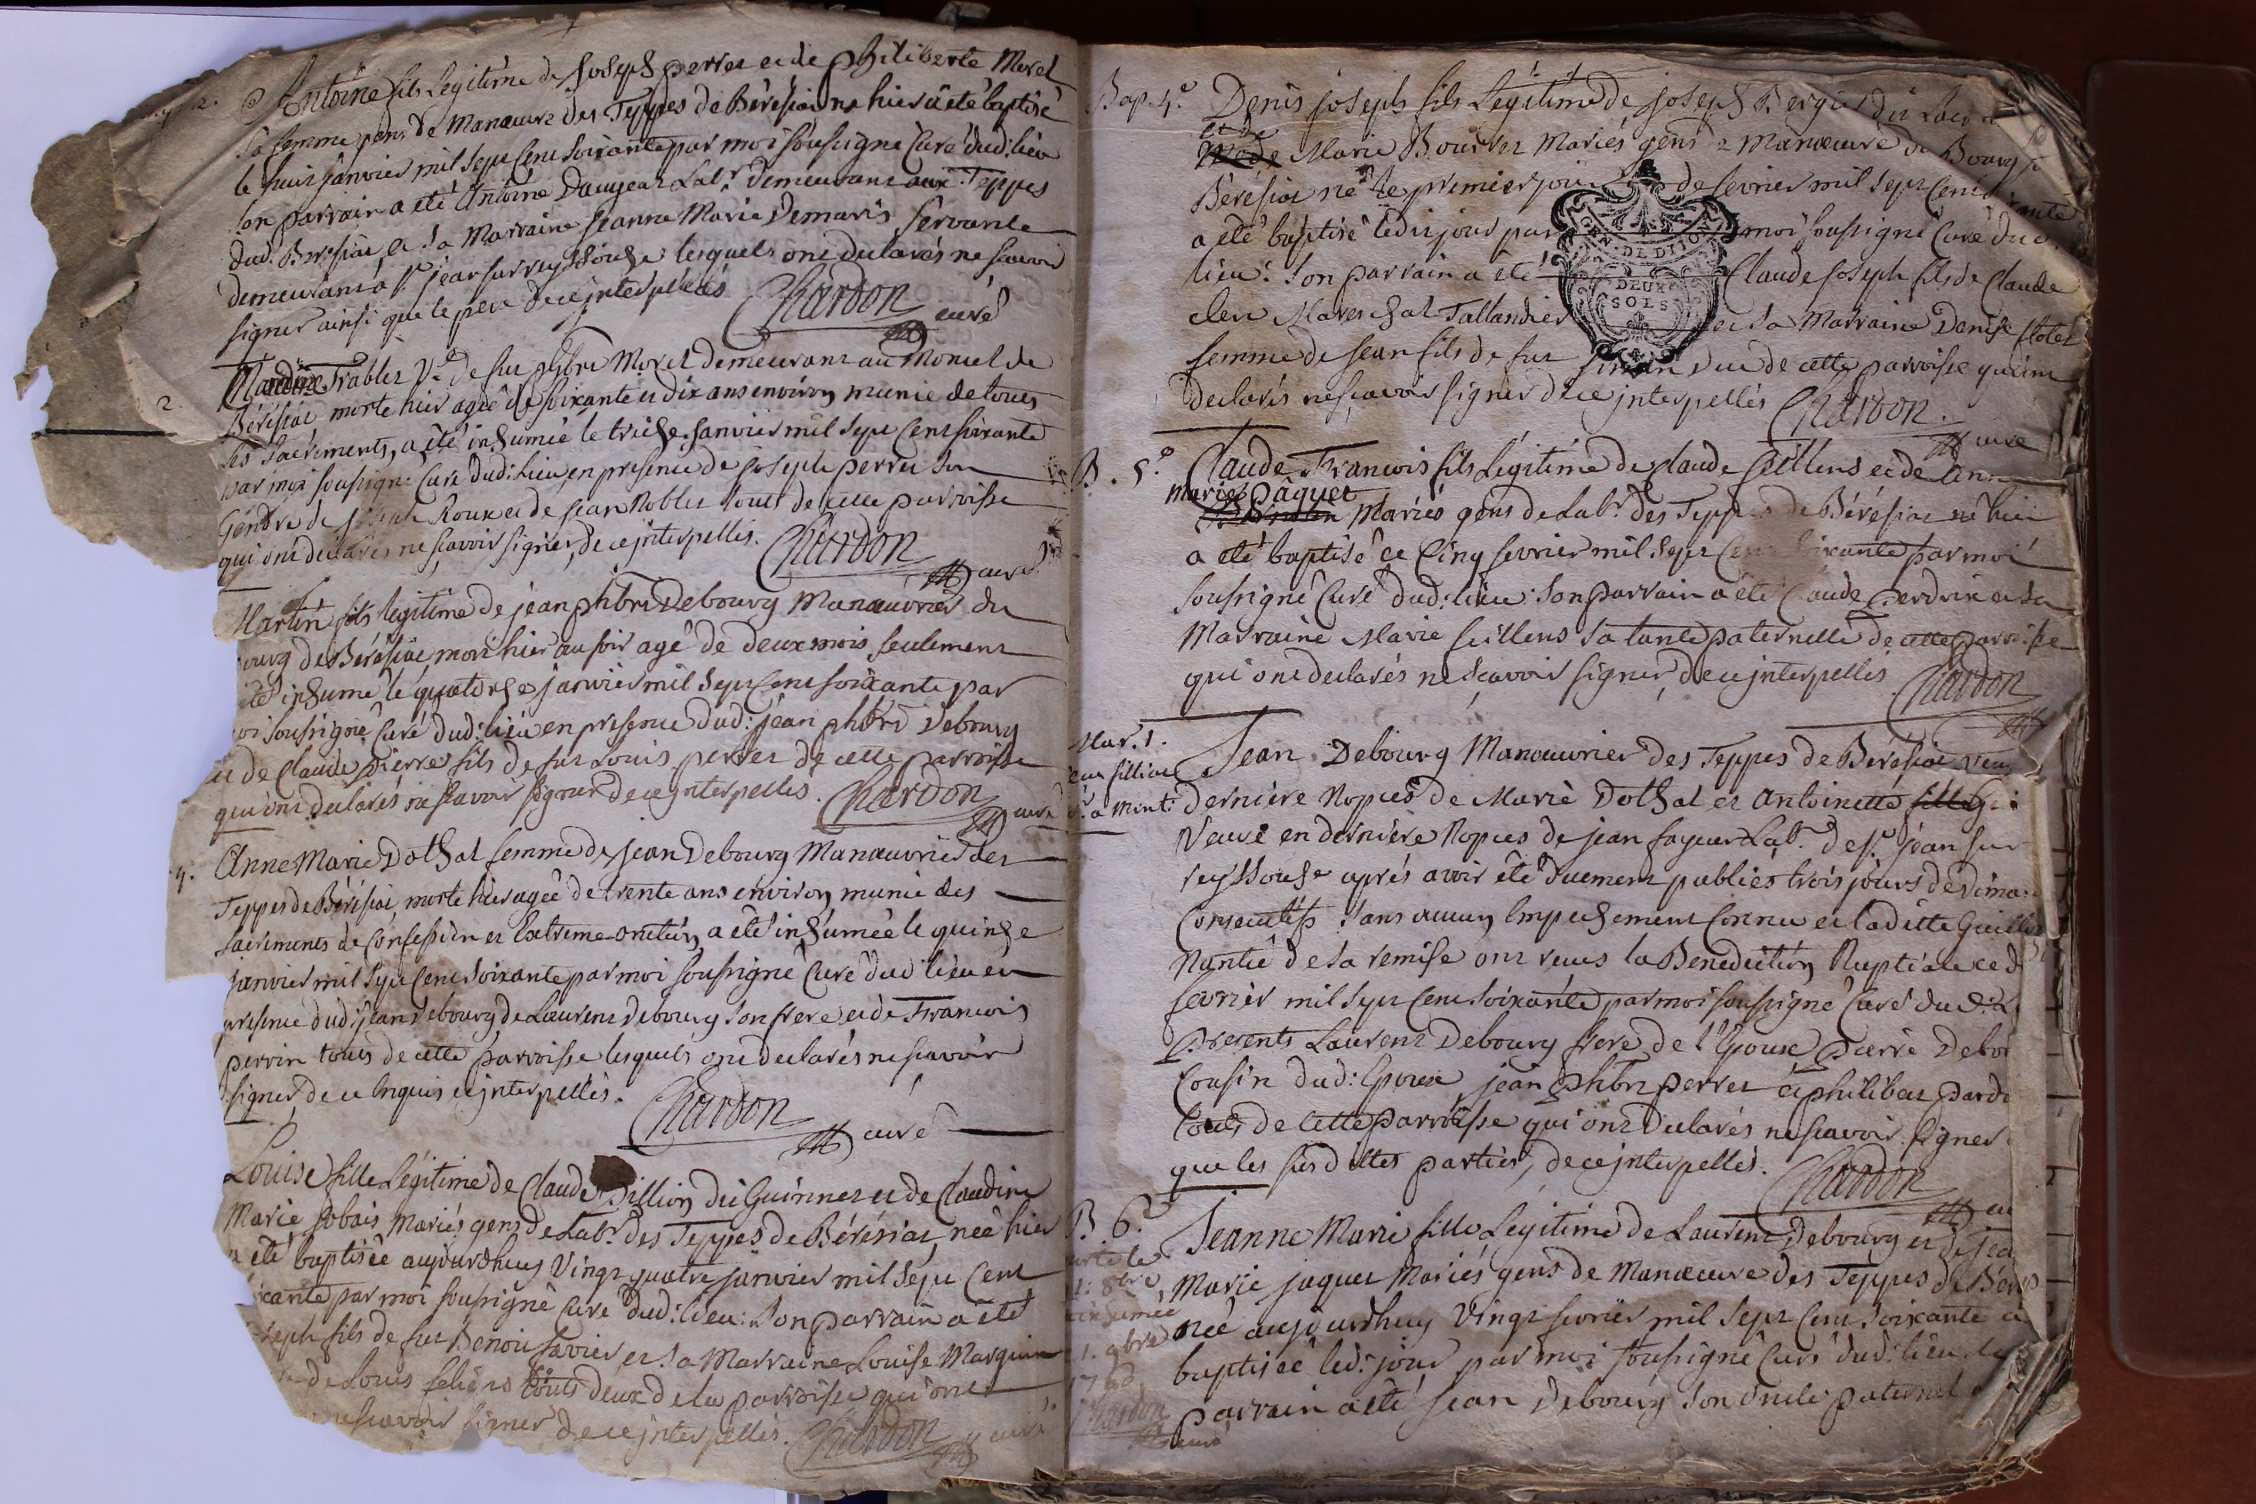 Antoine fils Legitime de Joseph perret et de philiberte Morel
Sa femme gens de Manœuvre des Teppes de Béréziat né hier a été baptisé
le huit janvier mil sept Cent Soixante par moi soussigné Curé dud: lieu
Son parrain a été Antoine Daugeat Labr. demeurant aux Teppes
dud. Béréziat et Sa Marraine Jeanne Marie Demaris Servante
demeurant à St. jean sur reyssouze lesquels ont declarés ne scavoir
signer ainsi que le pere de ce interpellés Chardon
curé
2.
Claudine Trablet Ve. de fut phbrt Morel demeurant au Moniel de
Béréziat morte hier agée de soixante et dix ans environ munie de tous
les Sacrements, a été inhumée le treize Janvier mil sept Cent soixante
par moi soussigné Curé dud: lieu en presence de joseph perret son
Gendre de Roux et de jean Nobles tous de cette parroisse
qui ont declarés ne scavoir signer, de ce interpellés. Chardon
curé
Martin fils legitime de jean phbrt Debourg Manœuvrier du
ourg de Béréziat mort hier au soir agé de deux mois seulement
été inhumé le quatorze janvier mil sept Cent soixante par
oi soussigné Curé dud: lieu en presence dud: jean phbrt Debourg
et de Claude Pierre fils de fut Louis perret de cette parroisse
qui ont declarés ne scavoir signer de ce interpellés. Chardon
curé
4.
Anne Marie Dothal femme de Jean Debourg Manœuvrier des
Teppes de Béréziat, morte hier agée de trente ans environ munie des
sacrements de Confession et Extreme-onction a été inhumée le quinze
janvier mil sept Cent soixante par moi soussigné Curé dud: lieu en
presence dud: jean Debourg de Laurent Debourg son frere et de Francois
perrin tous de cette parroisse lesquels ont declarés ne scavoir
signer, de ce enquis et interpellés.
Chardon
curé
Louise fille Légitime de Claude Dillion dit Guinnet et de Claudine
Marie Mariés gens de Labr. des Teppes de Béréziat, née hier
a été baptisée aujourdhuy Vingt quatre janvier mil Sept Cent
ixante par moi soussigné Curé dud: lieu: Son parrain a été
seph fils de fut Benoit favier et Sa Marraine Louise Marguin
de Louis tous deux de la parroisse qui ont
ne scavoir signer de ce interpellés. Chardon
curé
Bap. 4e.
Denis joseph fils Légitime de joseph Berger dit
et de
Marie Bourret Mariés gens de Manœuvre du Bourg
Béréziat né le premier jour de fevrier mil sept Cent ixante
a été baptisé ledit jour par moi soussigné Curé dud.
lieu: Son parrain a été Claude joseph fils de Claude
clerc Mareschal Taillandier et Sa Marraine Denise
GEN. DE DIJON
DEUX
SOLS
femme de jean fils de fut de cette parroisse qui ont
declarés ne scavoir signer de ce interpellés Chardon.
curé
B. 5e.
Claude Francois fils Légitime de Claude feillens et de Ann
marie pâquet
Mariés gens de Labr. des Teppes de Béréziat né hier
a été baptisé ce Cinq fevrier mil sept Cent soixante par moi
soussigné Curé dud: lieu: Son parrain a été Claude Perdrix et Sa
Marraine Marie feillens Sa tante paternelle de cette parroisse
qui ont declarés ne scavoir signer, de ce interpellés Chardon
Mar. 1.
Jean Debourg Manœuvrier des Teppes de Béréziat
derniere Nopces de Marie Dothal et Antoinette fille
Veuve en derniere Nopces de jean fayeut Labr. de St. jean sur
reyssouze aprés avoir été duement publiés trois jours de
Consecutifs sans aucun Empechement Connu et ladite
Nantie de Sa remise ont reçus la Benediction Nuptiale ce
fevrier mil Sept Cent Soixante par moi soussigné Curé dud:
Presents Laurent Debourg frere de l'Epoux Pierre
Cousin dud: Epoux, jean phbrt perret et philibert
tous de cette parroisse qui ont declarés ne scavoir signer
que les susdittes parties, de ce interpellés. Chardon
B. 6e.
Jeanne Marie fille Légitime de Laurent Debourg et de
Marie jaquet Mariés gens de Manœuvre des Teppes de
née aujourdhuy Vingt fevrier mil sept Cent soixante
baptisée led: jour par moi soussigné Curé dud: lieu.
parrain a été jean Debourg Son oncle paternel
8bre
inhumée
1. 9bre
Chardon
curé